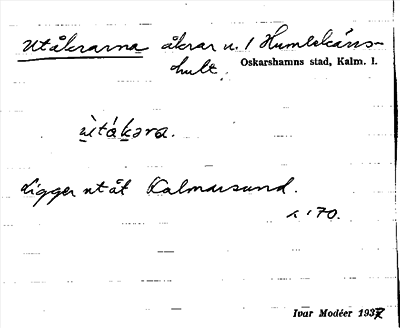 Utåkrarna åkrar u. 1 Humlekärrs-
hult.
Oskarshamns stad, Kalm. l.
ùtákəra.
Ligger utåt Kalmarsund.
170.
Ivar Modéer 1937